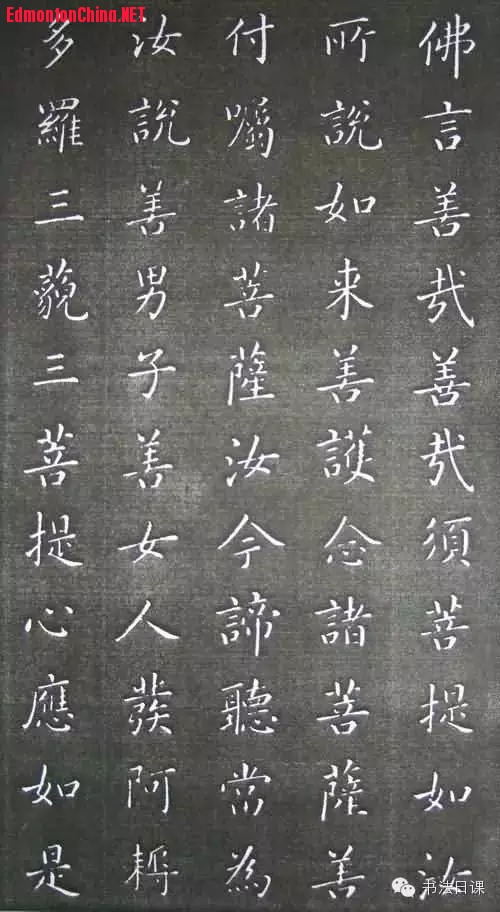 EdmontonChina.NET
佛言善哉善哉須菩提如汝
所說如来善護念諸菩薩善
付囑諸菩薩汝今諦聽當為
汝說善男子善女人發阿耨
多羅三藐三菩提心應如是
书法日课